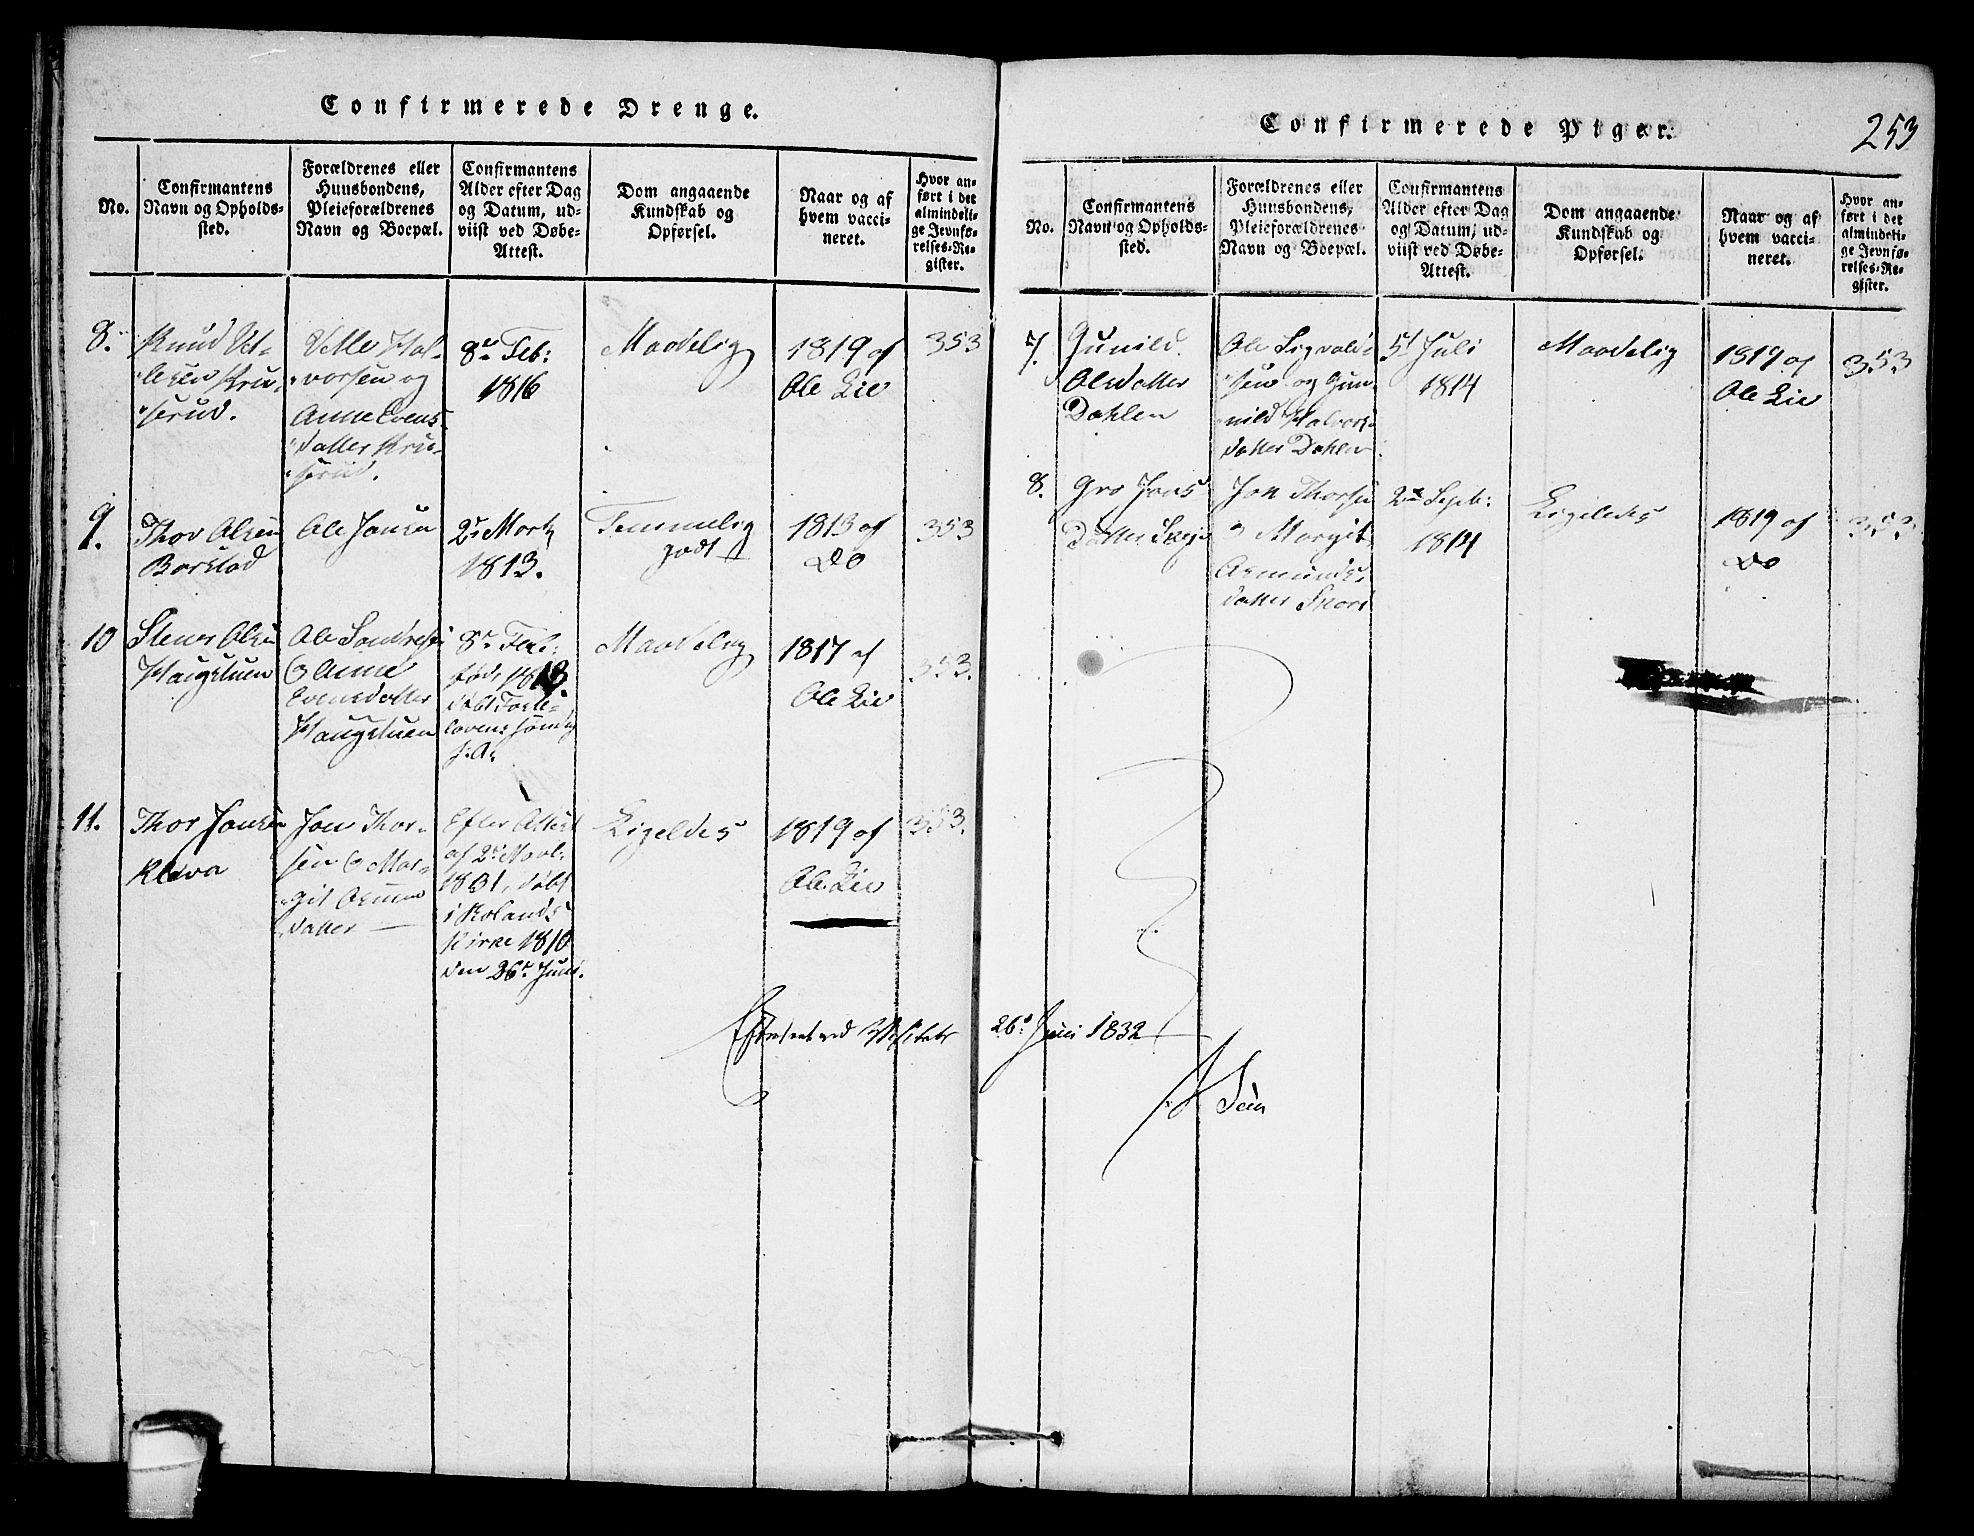 Confirmerede Drenge.
No.
Confirmantens
Navn og Opholds-
sted.
Forældrenes eller
Huusbondens,
Pleieforældrenes
Navn og Boepæl.
Confirmantens
Alder efter Dag
og Datum, ud-
viist ved Døbe-
Attest.
Dom angaaende
Kundskab og
Opførsel.
Naar og af
hvem vacci-
neret.
Hvor an-
ført i det
almindeli-
ge Jevnfø-
relses-Re-
gister.
8.
Knud Vet-
lesen Kru-
serud.
Vetle Hal-
vorsen og
Anne Evens
datter Kru-
serud.
8de Feb:
1816
Maadelig
1819 af
Ole Lie
353
9.
Thor Olsen
Borstad
Ole Jonsen
2den Marts
1813.
Temmelig
godt
1813 af
Do
353
10
Olsen
Haugstuen
Ole
& Anne
Evensdatter
Haugstuen
8de Feb:
født
døbt Faste-
lavens søndag
s. A.
Maadelig
1817 af
Ole Lie
353.
11.
Thor Jonsen
Kleva
Jon Thor-
sen & Mar-
git Asmun
datter —
Efter Attest
af
1831, døbt
i
Kirke 1816
den 26de Juni.
Ligeledes
1819 af
Ole Lie
353.
Confirmerede Piger.
253
No.
Confirmantens
Navn og Opholds-
sted.
Forældrenes eller
Huusbondens,
Pleieforældrenes
Navn og Boepæl.
Confirmantens
Alder efter Dag
og Datum, ud-
viist ved Døbe-
Attest.
Dom angaaende
Kundskab og
Opførsel.
Naar og af
hvem vacci-
neret.
Hvor an-
ført i det
almindeli-
ge Jevnfø-
relses-Re-
gister.
7.
Gunild
Olsdatter
Dahlen
Ole Sigvald-
sen og Gun-
nild Halvors-
datter Dahlen
5t Juli
1814
Maadelig
1819 af
Ole Lie
353
8.
Gro Jons
datter
Jon Thorsen
& Margit
Asmunds
datter
2den Sept:
1814
Ligeledes
1819 af
Do
353
Efterseet ved Visitats 26de Juni 1832